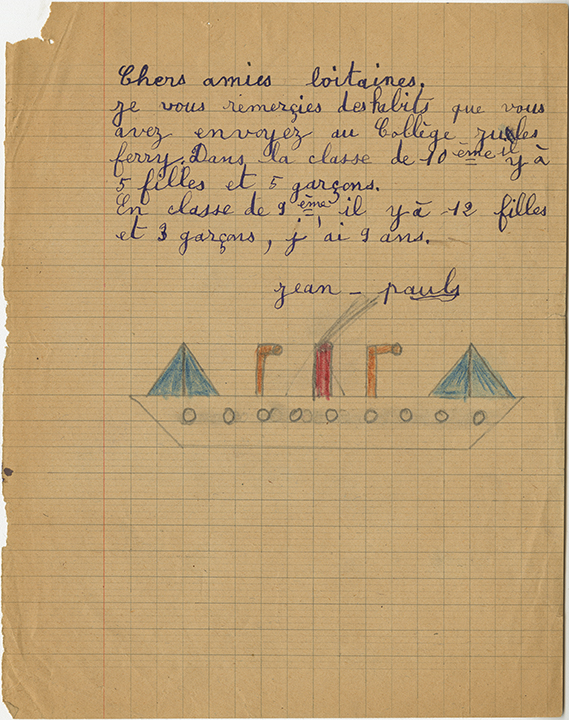 Chers amies loitaines,
je vous remerçies des habits que vous
avez envoyez au Collège jules
ferry. Dans la classe de 10 ème il y à
5 filles et 5 garçons.
En classe de 9 ème il y à 12 filles
et 3 garçons, j'ai 9 ans.
jean - pauls